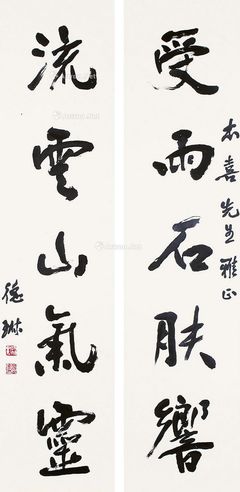 受雨石肤響
杰喜先生雅正
流雲山氣靈
德琳